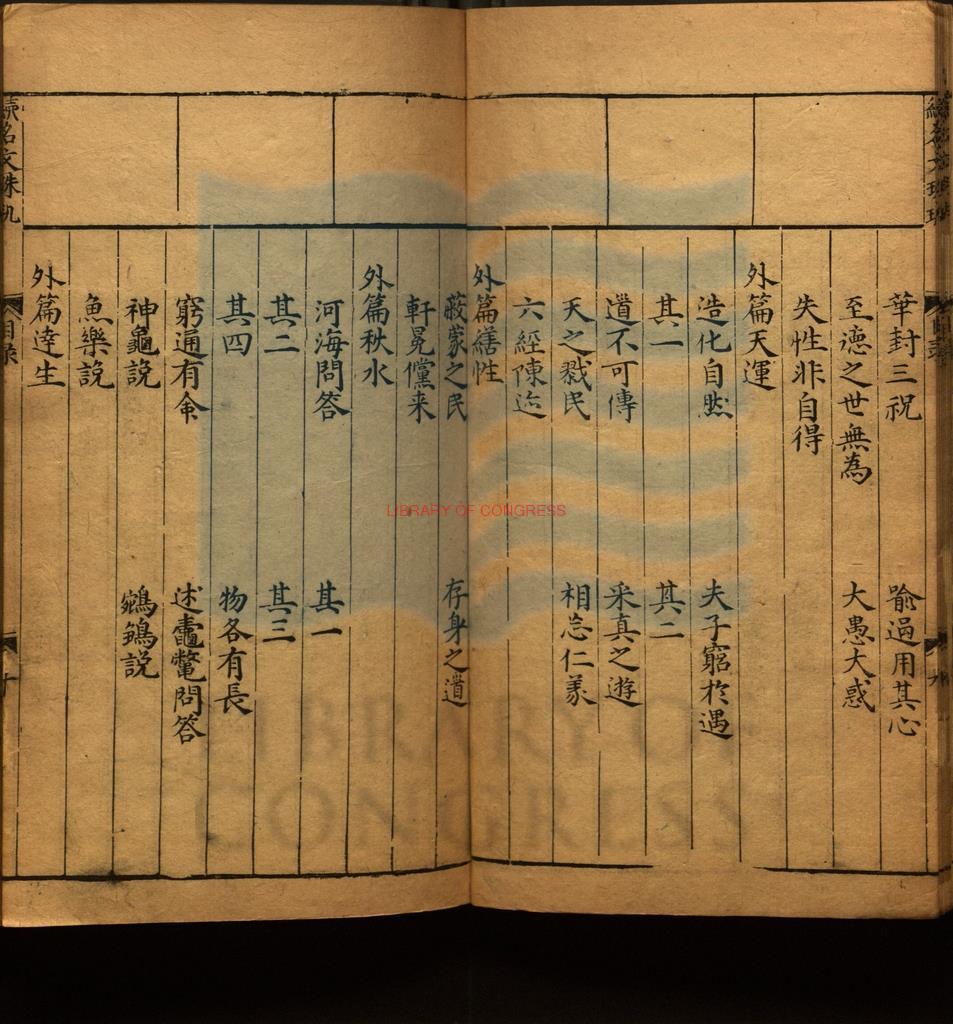 華封三祝 喻過用其心
至德之世無為 大愚大惑
失性非自得
外篇天運
造化自然 夫子窮於遇
其一 其二
道不可傳 采真之遊
天之戮民 相忘仁義
六經陳迹
外篇繕性
蔽蒙之民 存身之道
軒冕儻来
外篇秋水
河海問答 其一
其二 其三
其四 物各有長
窮通有命 述鼃鱉問答
神龜説 鵷鶵説
魚樂説
外篇達生
目錄
LIBRARY OF CONGRESS
LIBRARY OF
CONGRESS